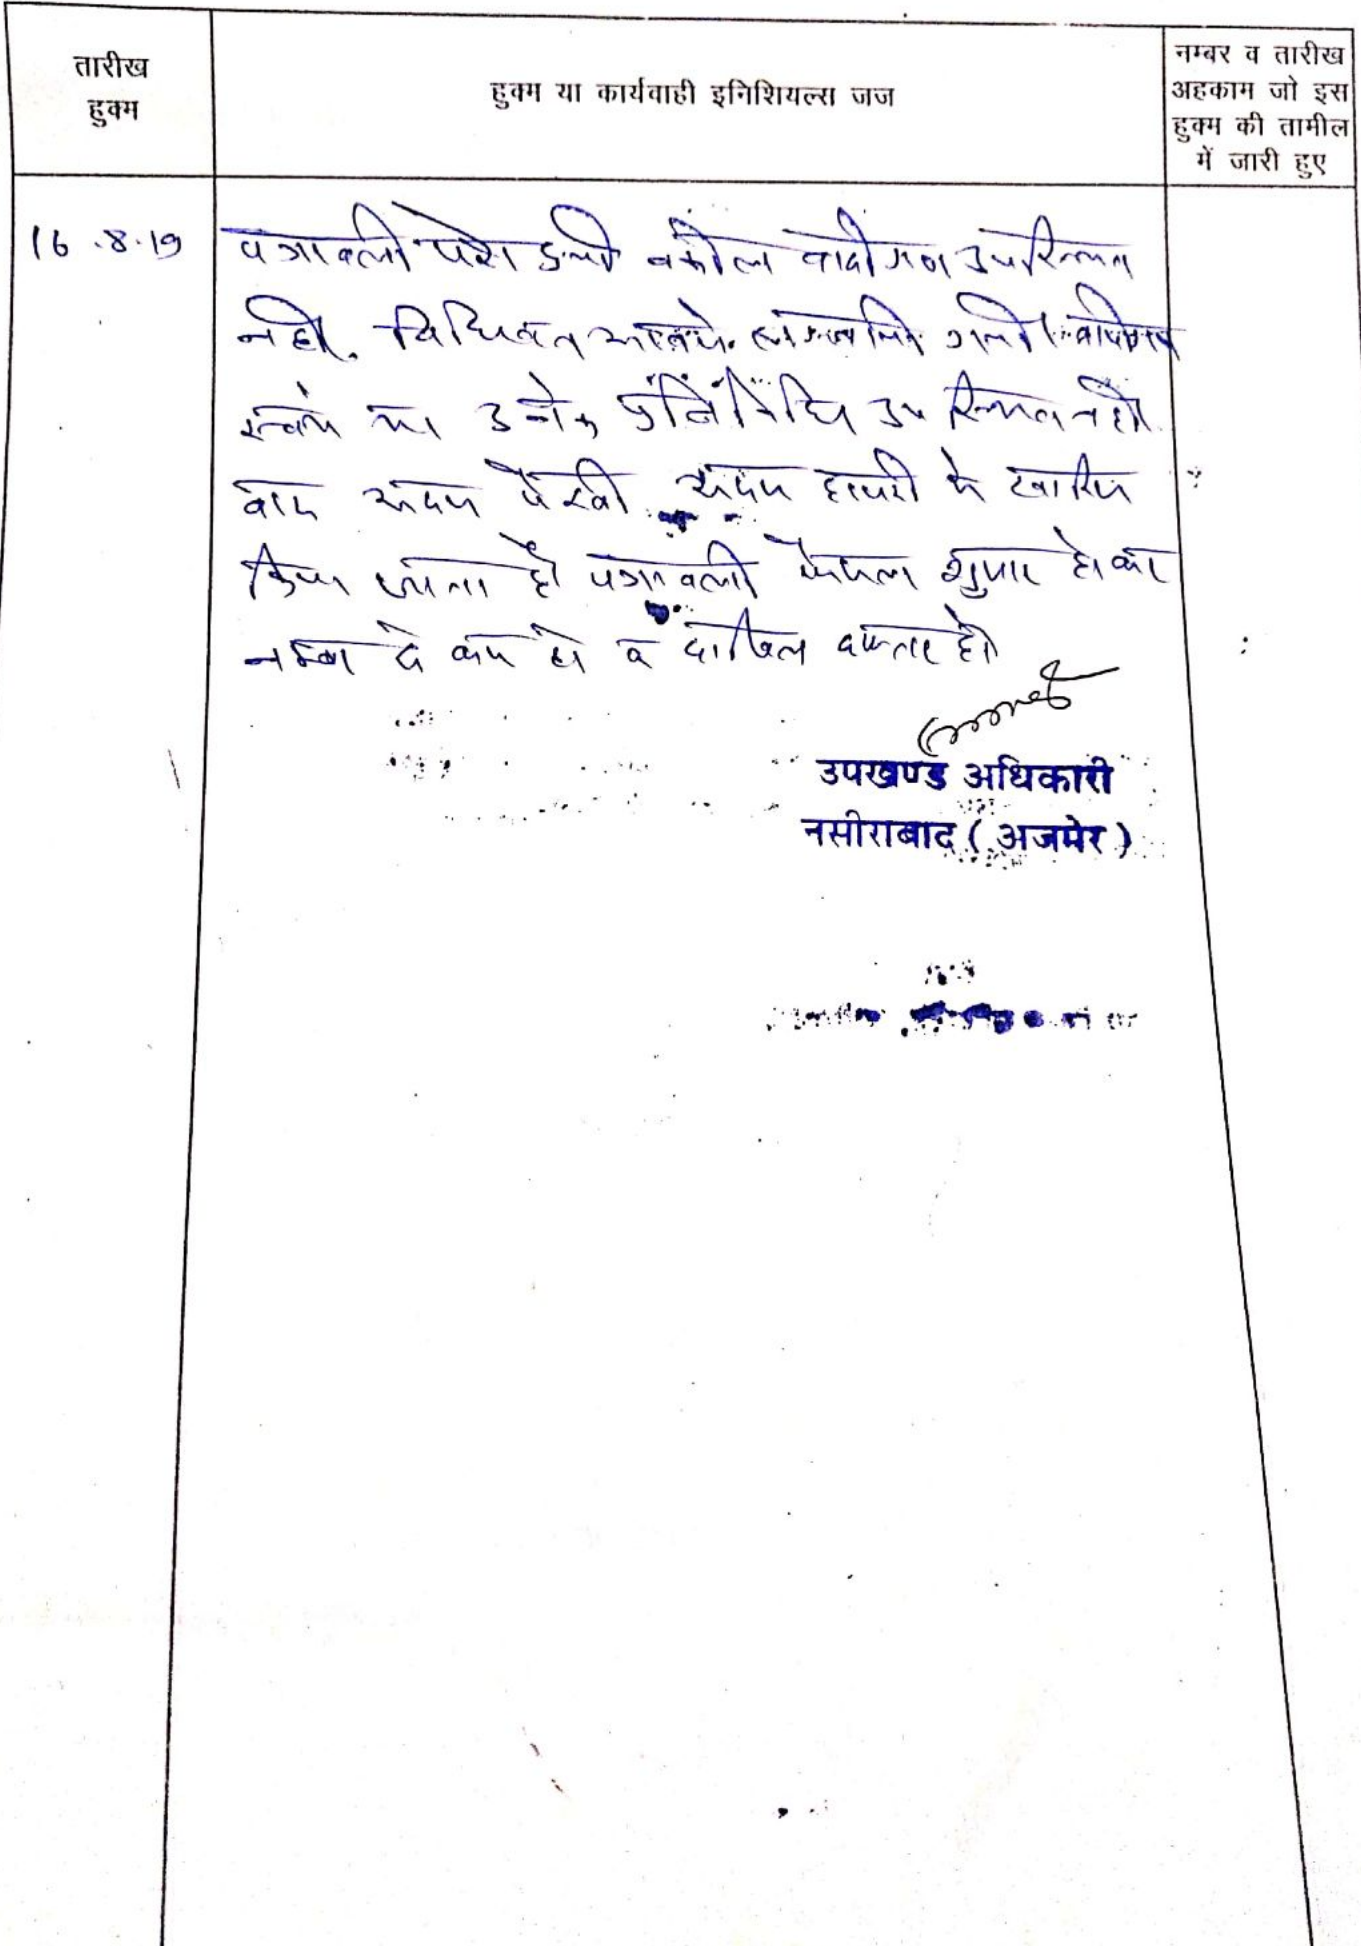 तारीख
हुक्म
हुक्म या कार्यवाही इनिशियल्स जज
नम्बर व तारीख
अहकाम जो इस
हुक्म की तामील
में जारी हुए
16.8.19
पत्रावली पेश हुयी वकील वादीगण उपस्थित
नही. विधिवत
स्वंय या उनके प्रतिनिधि उपस्थित नही
वाद अदम पैरवी अदम हाजरी मे खारिज
किया जाता है पत्रावली फैसल शुमार होकर
नम्बर से कम हो व दाखिल दफ्तर हो
उपखण्ड अधिकारी
नसीराबाद (अजमेर)